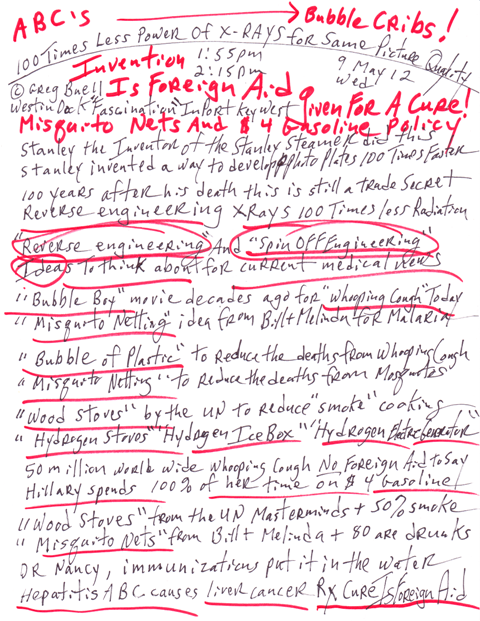 ABC's → Bubble Cribs!
100 Times Less Power of X-RAYS for Same Picture Quality
Invention 1:55pm 9 May 12
2:15pm Wed
© Greg Buell Is Foreign Aid Given For A Cure!
Westin Dock "Fascination" In Port Key West
Misquito Nets And $4 Gasoline Policy
Stanley the Inventor of the Stanley Steamer did this
Stanley invented a way to develop Photo Plates 100 Times Faster
100 years after his death this is still a trade Secret
Reverse engineering XRays 100 Times less Radiation
"Reverse engineering" And "Spin OFF Engineering"
Ideas To think about for current medical news
"Bubble Boy" movie decades ago for "Whooping Cough" Today
"Misquito Netting" idea from Bill + Melinda for Malaria
"Bubble of Plastic" to Reduce the deaths from Whooping Cough
"Misquito Netting" to Reduce the deaths from Mosquitoes
"Wood Stoves" by the UN to reduce "smoke" cooking
"Hydrogen Stoves" "Hydrogen IceBox" "Hydrogen Electro Generator"
50 million world wide Whooping Cough No Foreign Aid to Say
Hillary spends 100% of her time on $4 gasoline!
"Wood Stoves" from the UN Masterminds + 50% smoke
"Misquito Nets" from Bill + Melinda + 80 are drunks
DR Nancy, immunizations put it in the water
Hepatitis ABC causes liver cancer Rx Cure Is Foreign Aid